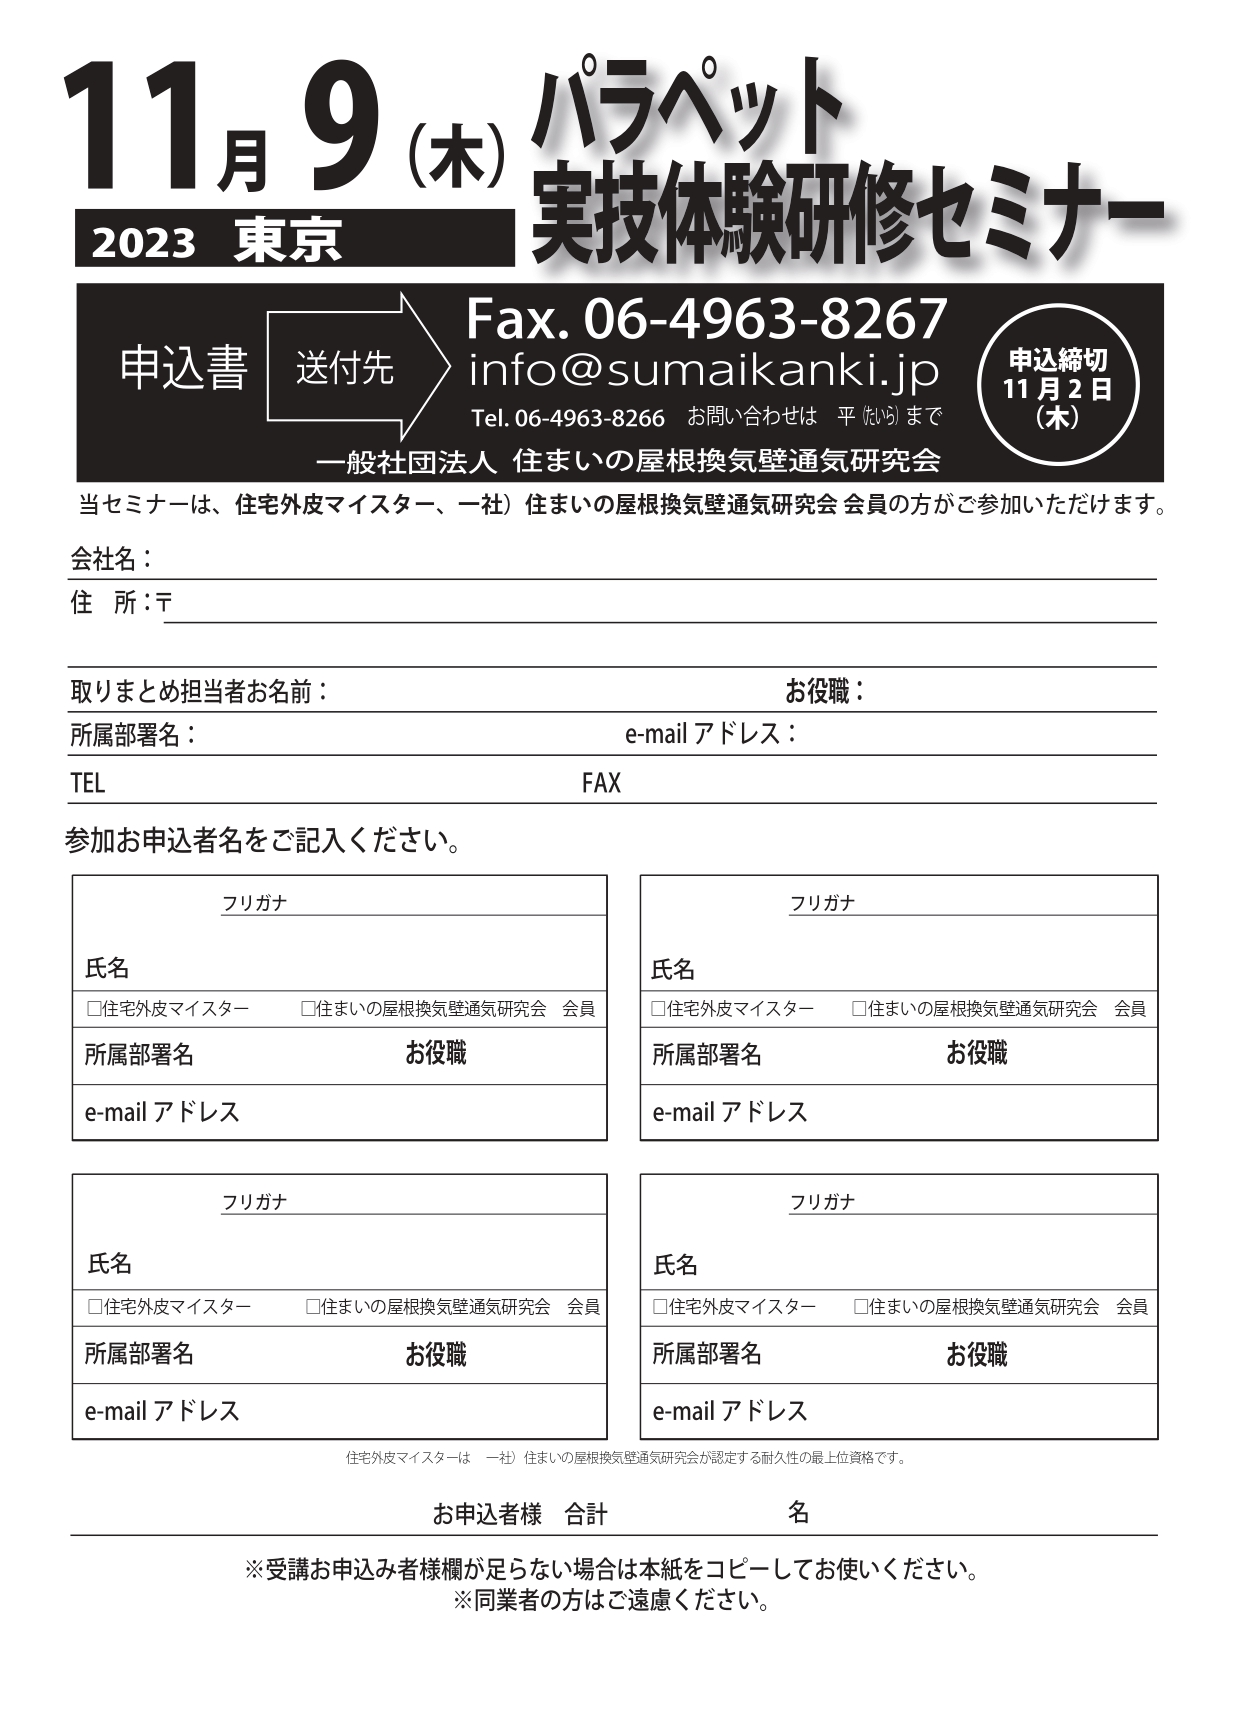 11月9（木）
パラペット
実技体験研修セミナー
2023 東京
申込書
送付先
Fax. 06-4963-8267
info@sumaikanki.jp
Tel. 06-4963-8266　お問い合わせは　平（たいら）まで
一般社団法人 住まいの屋根換気壁通気研究会
申込締切
11月2日
（木）
当セミナーは、住宅外皮マイスター、一社）住まいの屋根換気壁通気研究会 会員の方がご参加いただけます。
会社名：
住　所：〒
取りまとめ担当者お名前：　お役職：
所属部署名：　e-mail アドレス：
TEL　FAX
参加お申込者名をご記入ください。
フリガナ
氏名
□住宅外皮マイスター　□住まいの屋根換気壁通気研究会　会員
所属部署名　お役職
e-mail アドレス
フリガナ
氏名
□住宅外皮マイスター　□住まいの屋根換気壁通気研究会　会員
所属部署名　お役職
e-mail アドレス
フリガナ
氏名
□住宅外皮マイスター　□住まいの屋根換気壁通気研究会　会員
所属部署名　お役職
e-mail アドレス
フリガナ
氏名
□住宅外皮マイスター　□住まいの屋根換気壁通気研究会　会員
所属部署名　お役職
e-mail アドレス
住宅外皮マイスターは　一社）住まいの屋根換気壁通気研究会が認定する耐久性の最上位資格です。
お申込者様　合計　名
※受講お申込み者様欄が足らない場合は本紙をコピーしてお使いください。
※同業者の方はご遠慮ください。